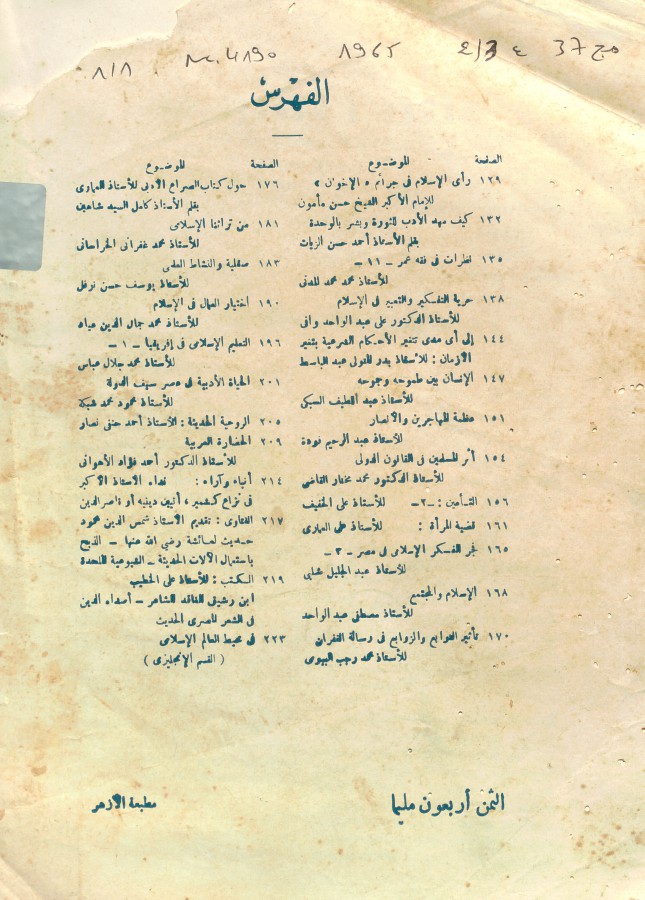 مج 37 ع 2/3 1965 Mc.4190 1/1
الفهرس
الصفحة الموضوع
١٢٩ رأى الإسلام فى جرائم « الإخوان »
للإمام الأكبر الشيخ حسن مأمون
١٣٢ كيف مهد الأدب للثورة وبشر بالوحدة
بقلم الأستاذ أحمد حسن الزيات
١٣٥ نظرات فى فقه عمر - ١١ -
للأستاذ محمد محمد المدنى
١٣٨ حرية التفكير والتعبير فى الإسلام
للأستاذ الدكتور على عبد الواحد وافى
١٤٤ إلى أى مدى تتغير الأحكام الشرعية بتغير
الأزمان : للأستاذ بدر المتولى عبد الباسط
١٤٧ الإنسان بين طموحه وجموحه
للأستاذ عبد اللطيف السبكى
١٥١ عظمة المهاجرين والأنصار
للأستاذ عبد الرحيم فودة
١٥٤ أثر المسلمين فى القانون الدولى
للأستاذ الدكتور محمد مختار القاضى
١٥٦ التأمين : -٢- للأستاذ على الخفيف
١٦١ قضية المرأة : للأستاذ على العمارى
١٦٥ فجر الفكر الإسلامى فى مصر - ٢ -
للأستاذ عبد الجليل شلبى
١٦٨ الإسلام والمجتمع
للأستاذ مصطفى عبد الواحد
١٧٠ تأثير التوابع والزوابع فى رسالة الغفران
للأستاذ محمد رجب البيومى
الصفحة الموضوع
١٧٦ حول كتاب الصراع الأدبى للأستاذ العمارى
بقلم الأستاذ كامل السيد شاهين
١٨١ من تراثنا الإسلامى
للأستاذ محمد غفرانى الخراسانى
١٨٣ صقلية والنشاط العلمى
للأستاذ يوسف حسن نوفل
١٩٠ أختيار العمال فى الإسلام
للأستاذ محمد جمال الدين عياد
١٩٦ التعليم الإسلامى فى إفريقيا - ١ -
للأستاذ محمد جلال عباس
٢٠١ الحياة الأدبية فى عصر سيف الدولة
للأستاذ محمود محمد شبكة
٢٠٥ الروحية الحديثة : للأستاذ أحمد حنفى نصار
٢٠٩ الحضارة العربية
للأستاذ الدكتور أحمد فؤاد الأهوانى
٢١٤ أنباء وآراء : نداء الأستاذ الأكبر
فى نزاع كشمير ، أنيين دينيه أو ناصر الدين
٢١٧ الفتاوى : تقديم الأستاذ شمس الدين محمود
حديث لعائشة رضي الله عنها - الذبح
باستعمال الآلات الحديثة - الشيوعية الملحدة
٢١٩ الكتب : للأستاذ على الخطيب
ابن رشيق الناقد الشاعر - أصداء الدين
فى الشعر المصرى الحديث
٢٢٣ فى محيط العالم الإسلامى
( القسم الإنجليزى )
الثمن أربعون مليما
مطبعة الأزهر